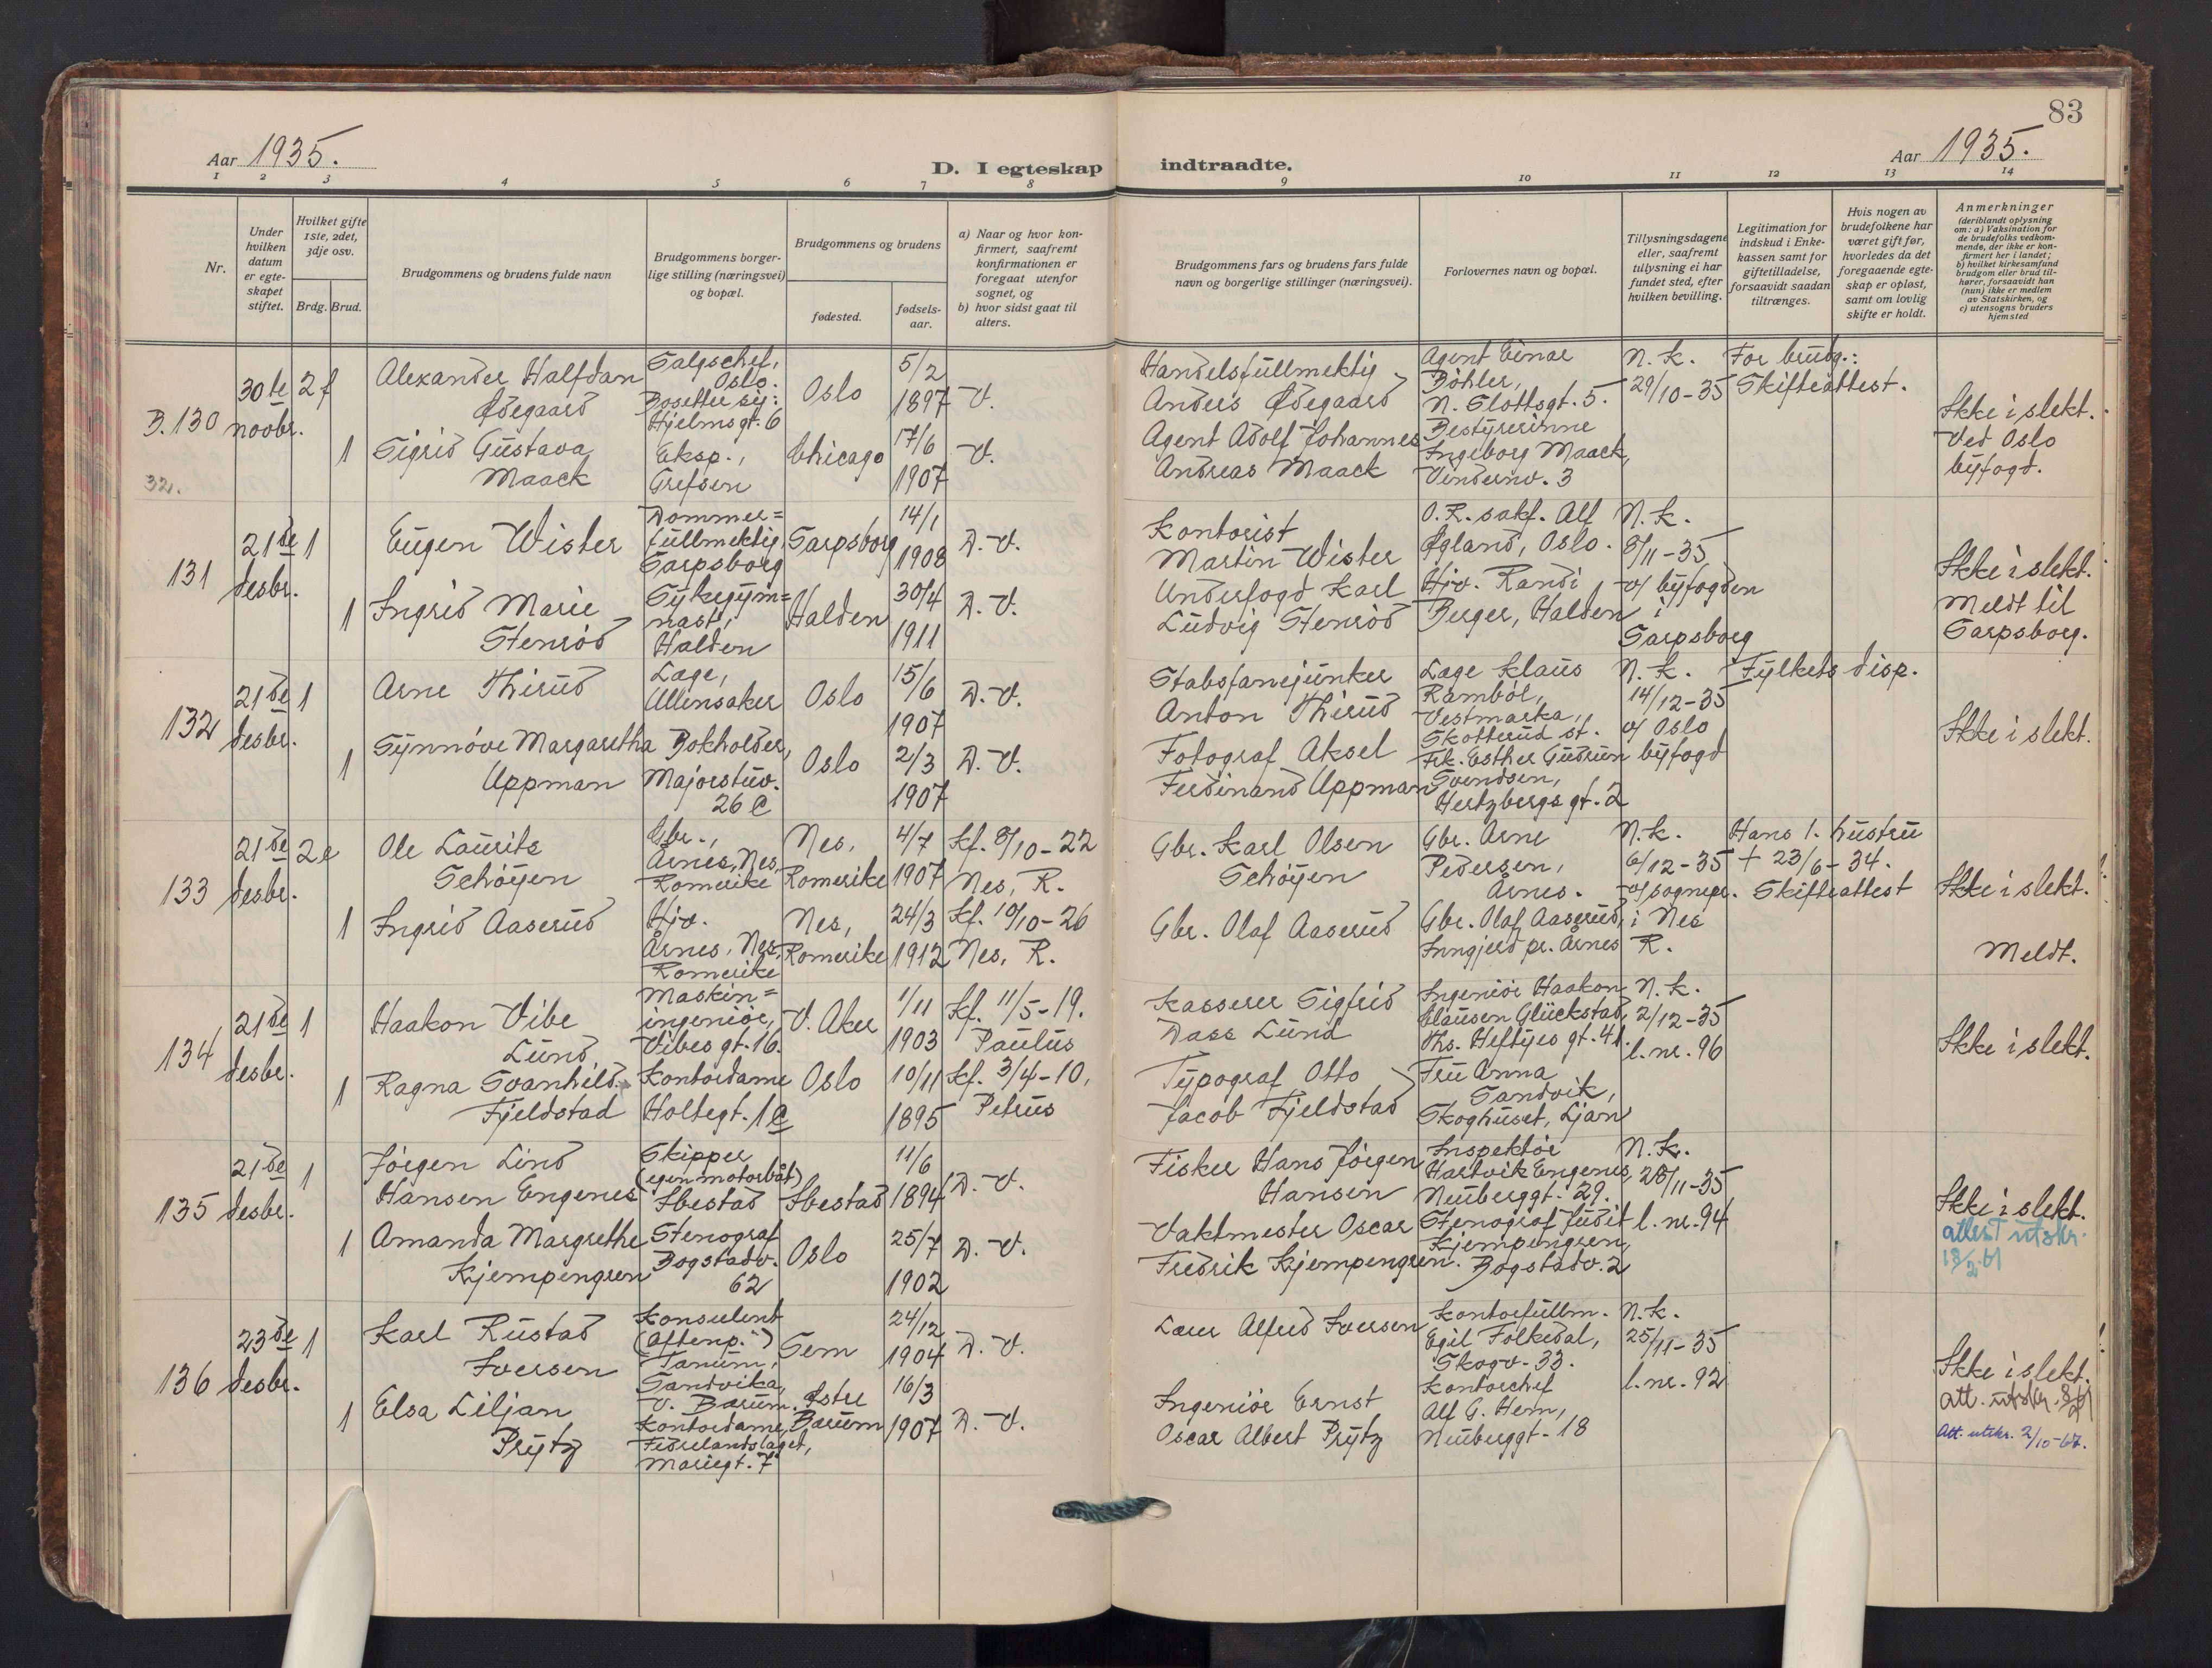 83
Aar 1935.
D. I egteskap indtraadte.
Aar 1935.
1 2 3 4 5 6 7 8 9 10 11 12 13 14
Nr.
Under hvilken datum er egte-skapet stiftet.
Hvilket gifte 1ste, 2det, 3dje osv.
Brdg. Brud.
Brudgommens og brudens fulde navn
Brudgommens borger-lige stilling (næringsvei) og bopæl.
Brudgommens og brudens
fødested.
fødsels-aar.
a) Naar og hvor kon-firmert, saafremt konfirmationen er foregaat utenfor sognet, og
b) hvor sidst gaat til alters.
Brudgommens fars og brudens fars fulde navn og borgerlige stillinger (næringsvei).
Forlovernes navn og bopæl.
Tillysningsdagene eller, saafremt tillysning ei har fundet sted, efter hvilken bevilling.
Legitimation for indskud i Enke-kassen samt for giftetilladelse, forsaavidt saadan tiltrænges.
Hvis nogen av brudefolkene har været gift før, hvorledes da det foregaaende egte-skap er opløst, samt om lovlig skifte er holdt.
Anmerkninger
(deriblandt oplysning om: a) Vaksination for de brudefolks vedkom-mende, der ikke er kon-firmert her i landet; b) hvilket kirkesamfund brudgom eller brud til-hører, forsaavidt han (hun) ikke er medlem av Statskirken, og c) utensogns bruders hjemsted
B. 130
32.
30te
novbr.
2 f
Alexander Halfdan
Ødegaard
Salgschef,
Oslo.
Bosetter sig:
Hjelmsgt. 6
Oslo
5/2
1897
V.
Handelsfullmektig
Anders Ødegaard
Agent Einar
Böhler,
N. Slottsgt. 5.
N. k.
29/10-35
For brudg.:
Skifteattest.
Ikke i slekt.
Ved Oslo
byfogd.
1
Sigrid Gustava
Maack
Eksp.,
Grefsen
Chicago
17/6
1907
V.
Agent Adolf Johannes
Andreas Maack
Bestyrerinne
Ingeborg Maack,
Vindernv. 3
131
21de
desbr.
1
Eugen Wister
Dommer=
fullmektig,
Sarpsborg
Sarpsborg
14/1
1908
D. V.
Kontorist
Martin Wister
O. R. sakf. Alf
Øgland, Oslo.
N. k.
8/11-35
v/ byfogden
i
Sarpsborg
Ikke i slekt.
Meldt til
Sarpsborg.
1
Ingrid Marie
Stenród
Sykegym=
nast,
Halden
Halden
30/4
1911
D. V.
Underfogd Karl
Ludvig Stenród
Hjv. Randi
Berger, Halden
132
21de
desbr.
1
Arne Thirud
Læge,
Ullensaker
Oslo
15/6
1907
D. V.
Stabsfanejunker
Anton Thirud
Læge Klaus
Ramból,
Vestmarka,
Skotterud st.
N. k.
14/12-35
v/ Oslo
byfogd
Fylkets disp.
Ikke i slekt.
1
Synnóve Margaretha
Uppman
Bokholder,
Majorstuv.
26 C
Oslo
2/3
1907
D. V.
Fotograf Aksel
Ferdinand Uppman
Frk. Esther Gudrun
Svendsen,
Hertzbergs gt. 2
133
21de
desbr.
2 e
Ole Laurits
Schóyen
Gbr.,
Årnes, Nes,
Romerike
Nes,
Romerike
4/7
1907
Kf. 8/10-22
Nes, R.
Gbr. Karl Olsen
Schóyen
Gbr. Arne
Pedersen,
Årnes.
N. k.
6/12-35
v/ sognepr.
i Nes
R.
Hans 1. hustru
+ 23/6-34.
Skifteattest
Ikke i slekt.
Meldt.
1
Ingrid Aaserud
Hjv.
Årnes, Nes,
Romerike
Nes,
Romerike
24/3
1912
Kf. 10/10-26
Nes, R.
Gbr. Olaf Aaserud
Gbr. Olaf Aaserud,
Inngjerd pr. Årnes
134
21de
desbr.
1
Haakon Vibe
Lund
Maskin=
ingeniór,
Vibes gt. 16.
V. Aker
1/11
1903
Kf. 11/5-19.
Paulus
Kasserer Sigfrid
Dass Lund
Ingeniór Haakon
Clausen Glückstad,
Ths. Heftyes gt. 41.
N. k.
2/12-35
l. nr. 96
Ikke i slekt.
1
Ragna Svanhild
Fjeldstad
Kontordame
Holtegt. 1 C
Oslo
10/11
1895
Kf. 3/4-10,
Petrus
Typograf Otto
Jacob Fjeldstad
Fru Anna
Sandvik,
Skoghuset, Ljan
135
21de
desbr.
1
Jórgen Lind
Hansen Engenes
Skipper
(egen motorbåt)
Ibestad
Ibestad
11/6
1894
D. V.
Fisker Hans Jórgen
Hansen
Inspektór
Hartvik Engenes,
Neuberggt. 29.
N. k.
28/11-35
l. nr. 94
Ikke i slekt.
attest utskr.
18/2 61
1
Amanda Margrethe
Kjempengren
Stenograf
Bogstadv.
62
Oslo
25/7
1902
D. V.
Vaktmester Oscar
Fredrik Kjempengren.
Stenograf Judit
Kjempengren,
Bogstadv. 2
136
23de
desbr.
1
Karl Rustad
Iversen
Konsulent
(Aftenp.")
Tanum,
Sandvika,
V. Bærum.
Sem
24/12
1904
D. V.
Lærer Alfred Iversen
Kontorfullm.
Egil Folkedal,
Skogv. 33.
N. k.
25/11-35
l. nr. 92
Ikke i slekt.
att. utskr.
Att. utskr. 2/10-67.
1
Elsa Liljan
Prytz
Kontordame,
Fedrelandslaget,
Mariegt. 7
Østre
Bærum
16/3
1907
D. V.
Ingeniór Ernst
Oscar Albert Prytz
Kontorchef
Alf G. Hern,
Neuberggt. 18